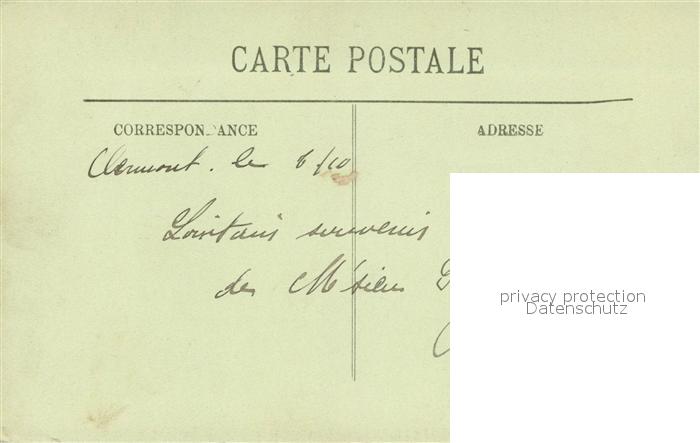 CARTE POSTALE
CORRESPONDANCE
ADRESSE
Clermont. le 6/10
Lointains souvenirs
de M'sieu
privacy protection
Datenschutz